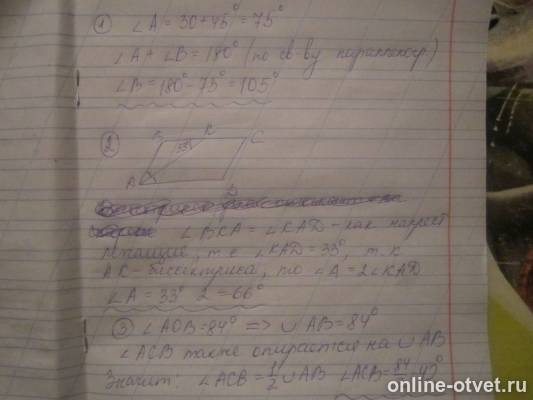 1 ∠A = 30 + 45° = 75°
∠A + ∠B = 180° (по св-ву параллелогр.)
∠B = 180° - 75° = 105°
2
B K C
33°
A D
∠BKA = ∠KAD - как накрест
лежащие, т.е ∠KAD = 33°, т.к
AK - биссектриса, то ∠A = 2∠KAD
∠A = 33° · 2 = 66°
3 ∠AOB = 84° => ∪ AB = 84°
∠ACB также опирается на ∪ AB
Значит: ∠ACB = 1/2 ∪ AB ∠ACB = 84/2 = 42°
online-otvet.ru